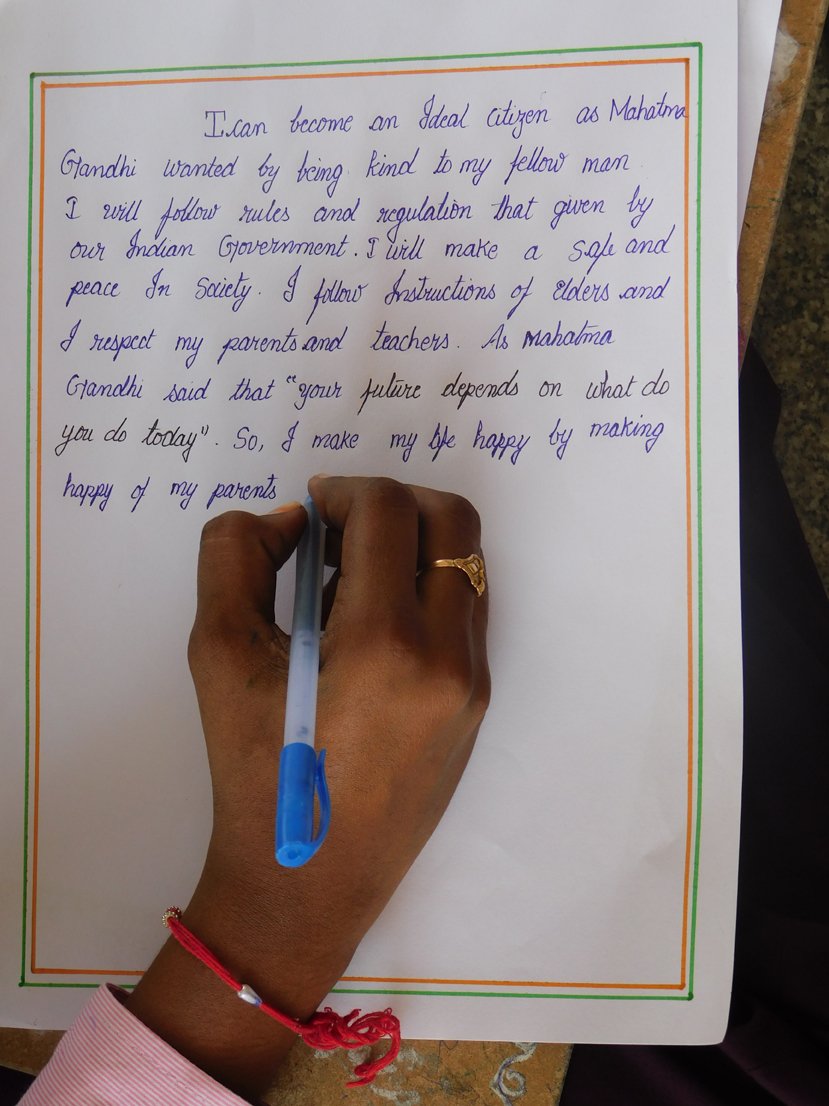 I can become an Ideal citizen as Mahatma
Gandhi wanted by being kind to my fellow man
I will follow rules and regulation that given by
our Indian Government. I will make a safe and
peace In Society. I follow Instructions of Elders and
I respect my parents and teachers. As Mahatma
Gandhi said that "your future depends on what do
you do today". So, I make my life happy by making
happy of my parents